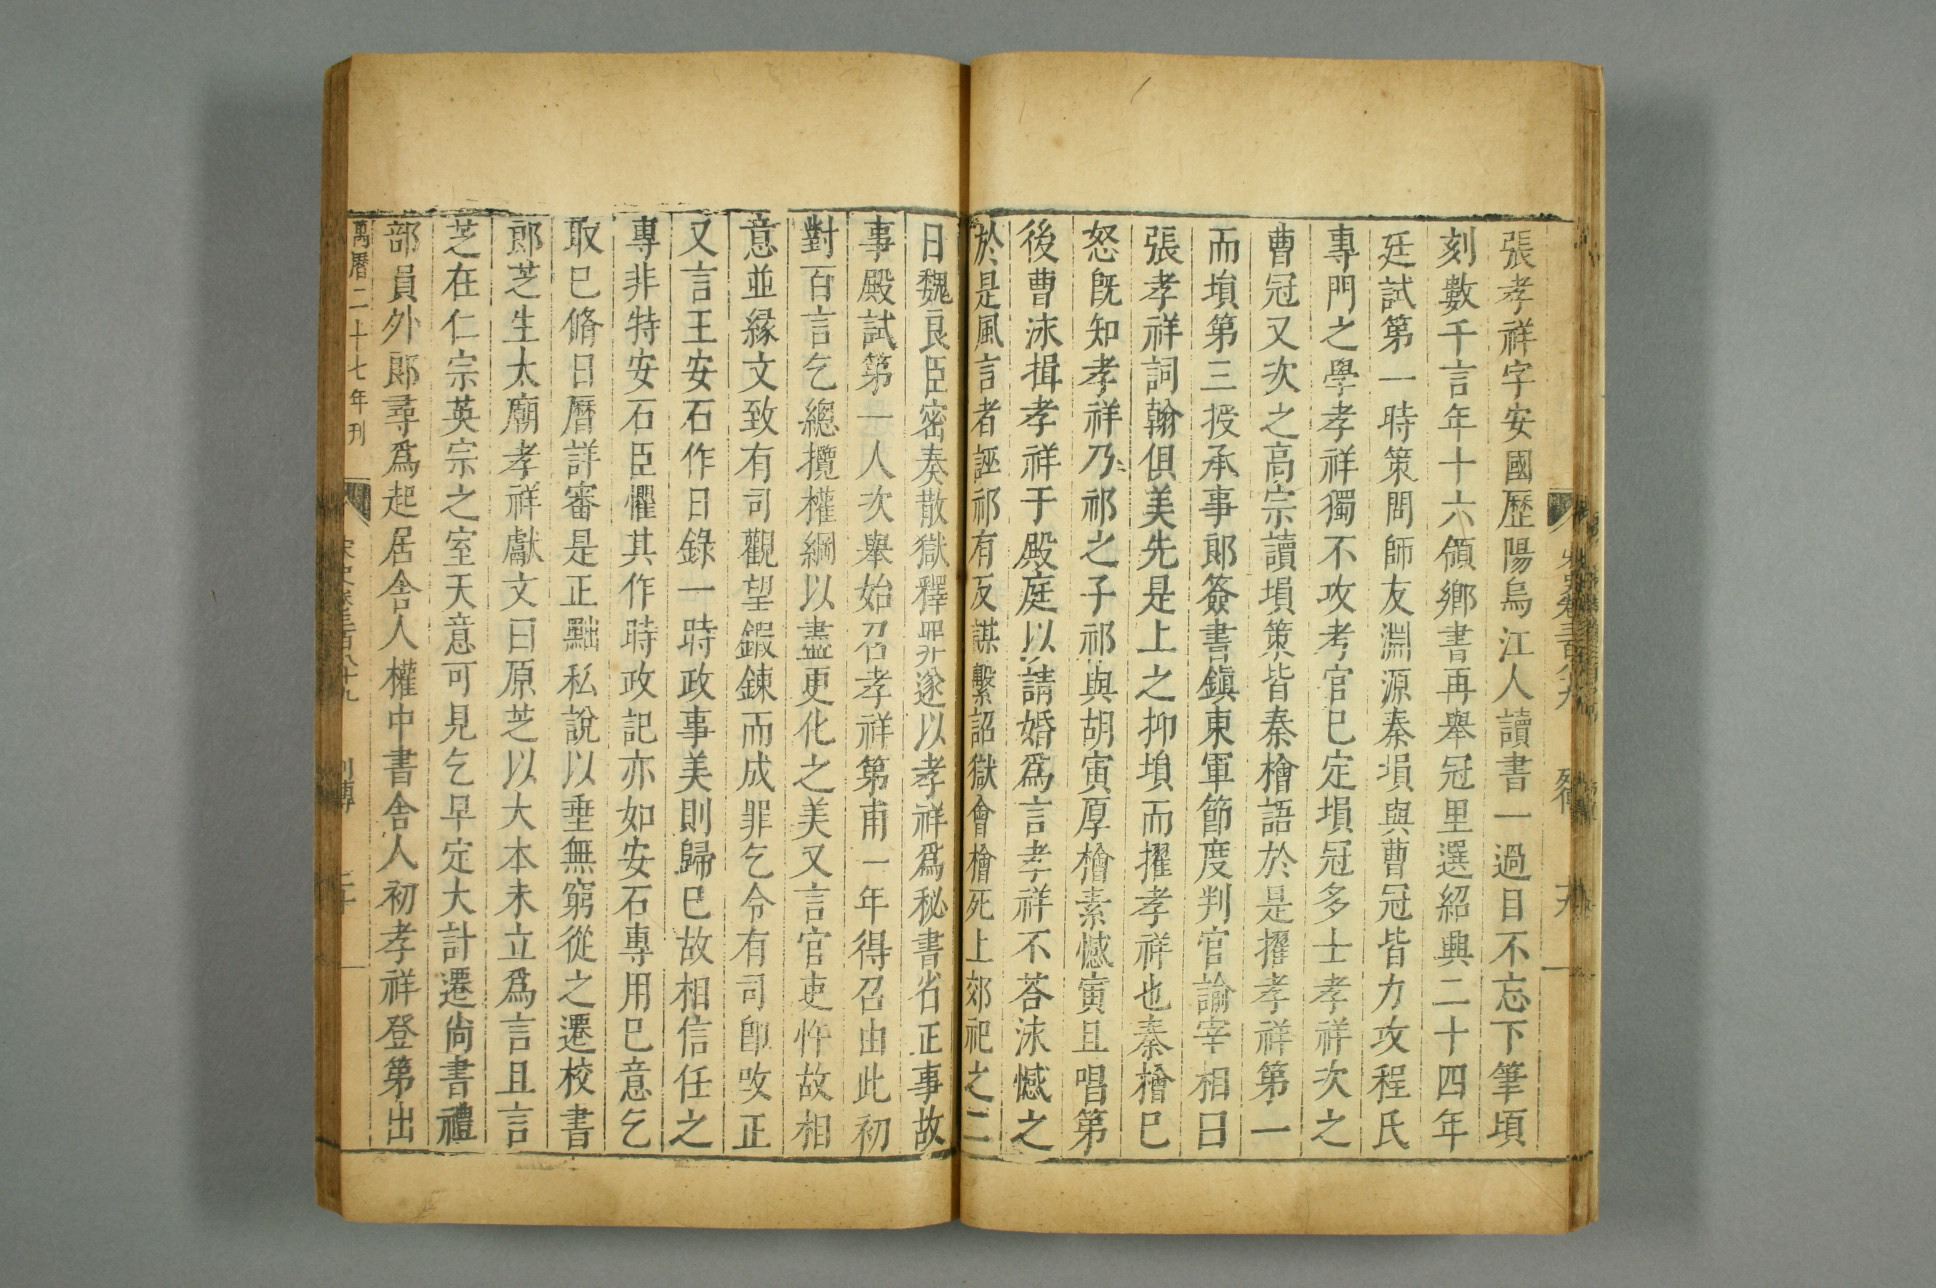 張孝祥字安國歷陽烏江人讀書一過目不忘下筆頃
刻數千言年十六領鄉書再舉冠里選紹興二十四年
廷試第一時策問師友淵源秦塤與曹冠皆力攻程氏
專門之學孝祥獨不攻考官已定塤冠多士孝祥次之
曹冠又次之高宗讀塤策皆秦檜語於是擢孝祥第一
而塤第三授承事郎簽書鎮東軍節度判官諭宰相曰
張孝祥詞翰俱美先是上之抑塤而擢孝祥也秦檜已
怒旣知孝祥乃祁之子祁與胡寅厚檜素憾寅且唱第
後曹泳揖孝祥于殿庭以請婚爲言孝祥不荅泳憾之
於是風言者誣祁有反謀繫詔獄會檜死上郊祀之二
日魏良臣密奏散獄釋罪遂以孝祥爲秘書省正事故
事殿試第一人次舉始召孝祥第甫一年得召由此初
對百言乞總攬權綱以盡更化之美又言官吏忤故相
意並緣文致有司觀望鍛鍊而成罪乞令有司卽改正
又言王安石作日錄一時政事美則歸已故相信任之
專非特安石臣懼其作時政記亦如安石專用已意乞
取已脩日曆詳審是正黜私說以垂無窮從之遷校書
郎芝生太廟孝祥獻文曰原芝以大本未立爲言且言
芝在仁宗英宗之室天意可見乞早定大計遷尚書禮
部員外郎尋爲起居舍人權中書舍人初孝祥登第出
萬曆二十七年刊
宋史卷三百八十九 列傳 二十